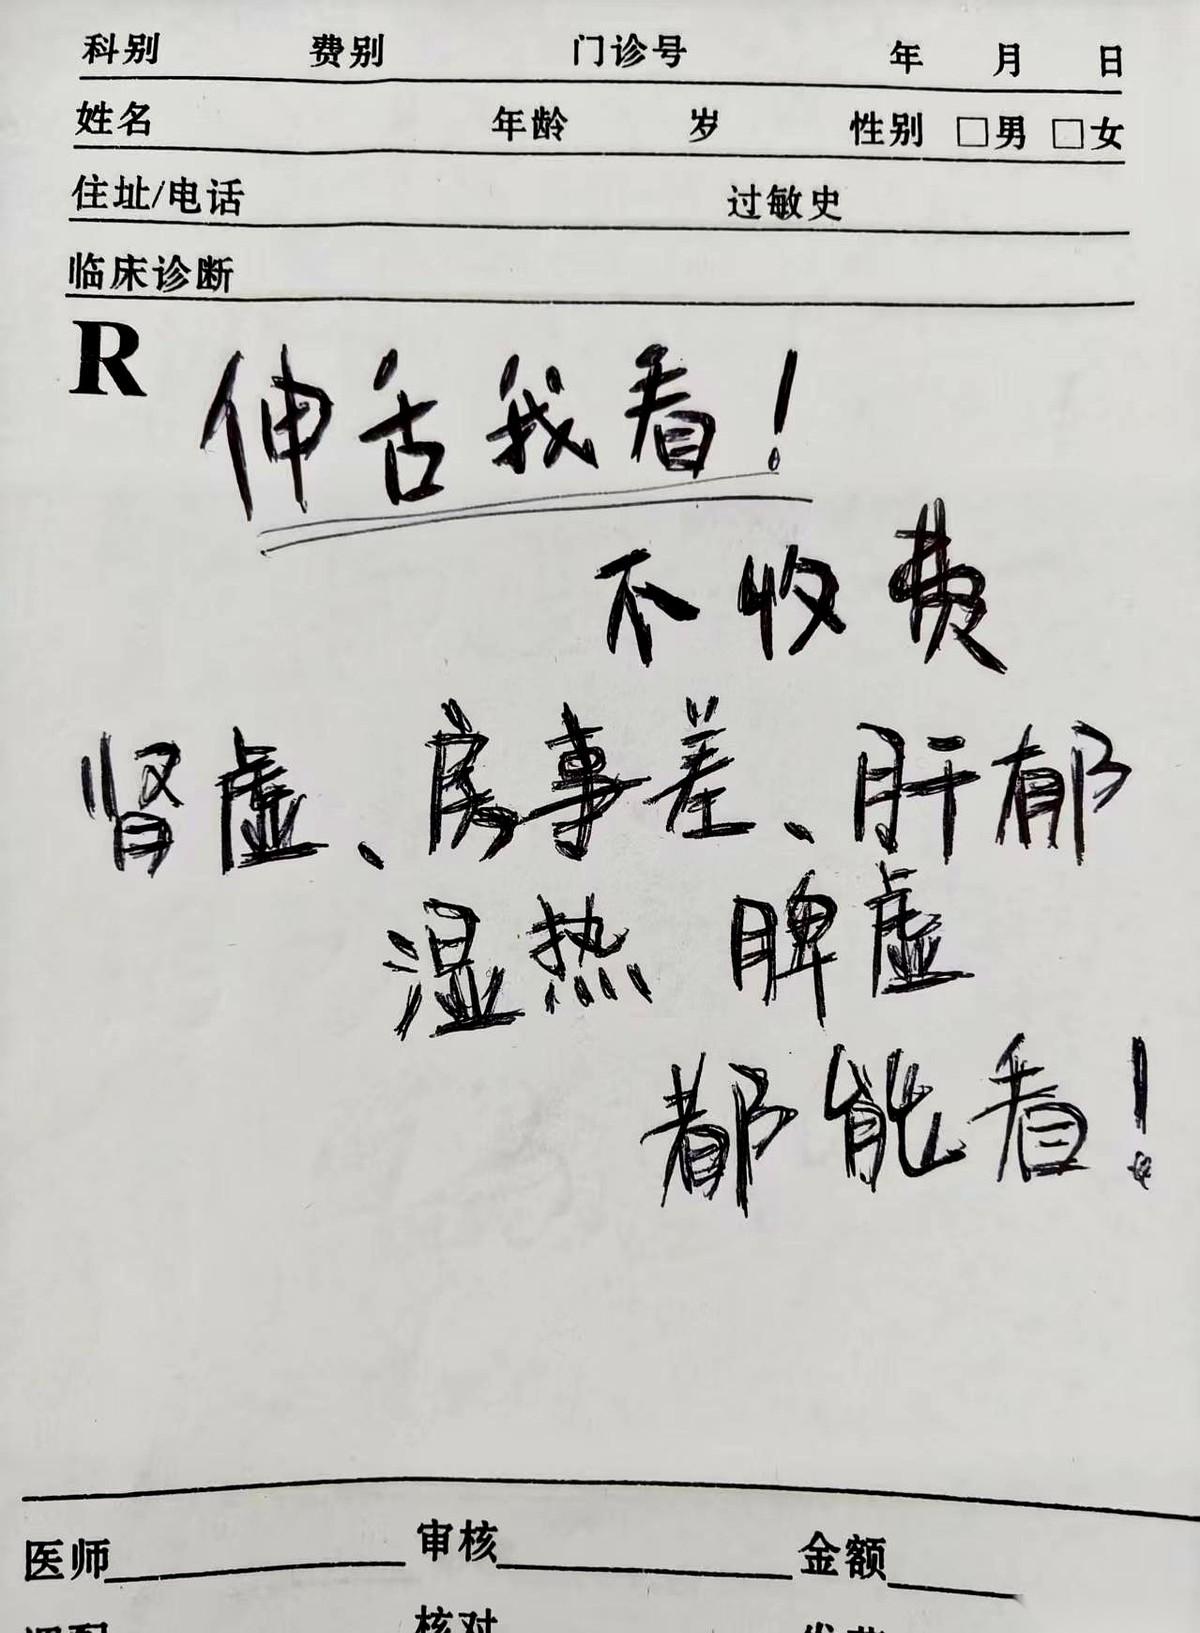 科别 费别 门诊号 年 月 日
姓名 年龄 岁 性别 □男 □女
住址/电话 过敏史
临床诊断
R
伸舌我看!
不收费
肾虚、房事差、肝郁
湿热 脾虚
都能看!
医师 审核 金额
核对